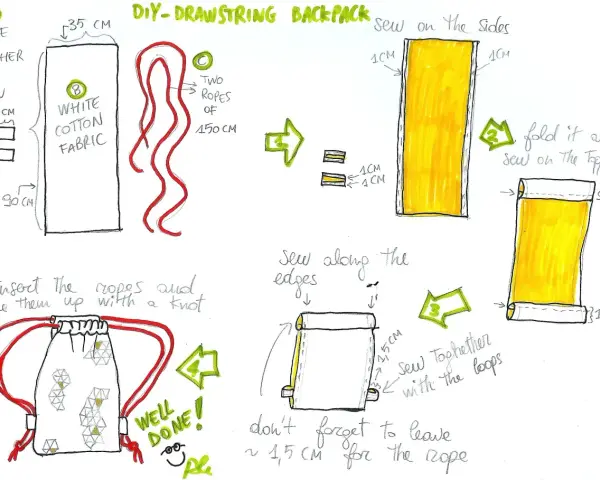 DIY-DRAWSTRING BACKPACK
35 CM
B
WHITE
COTTON
FABRIC
90 CM
C
TWO
ROPES
OF
150 CM
sew on the sides
1CM
1CM
1
1CM
1CM
2
fold it a
sew on the Top
3
sew along the
edges
1,5 CM
sew Toghether
with the loops
don't forget to leave
~ 1,5 CM for the rope
4
insert the ropes and
them up with a knot
WELL
DONE!